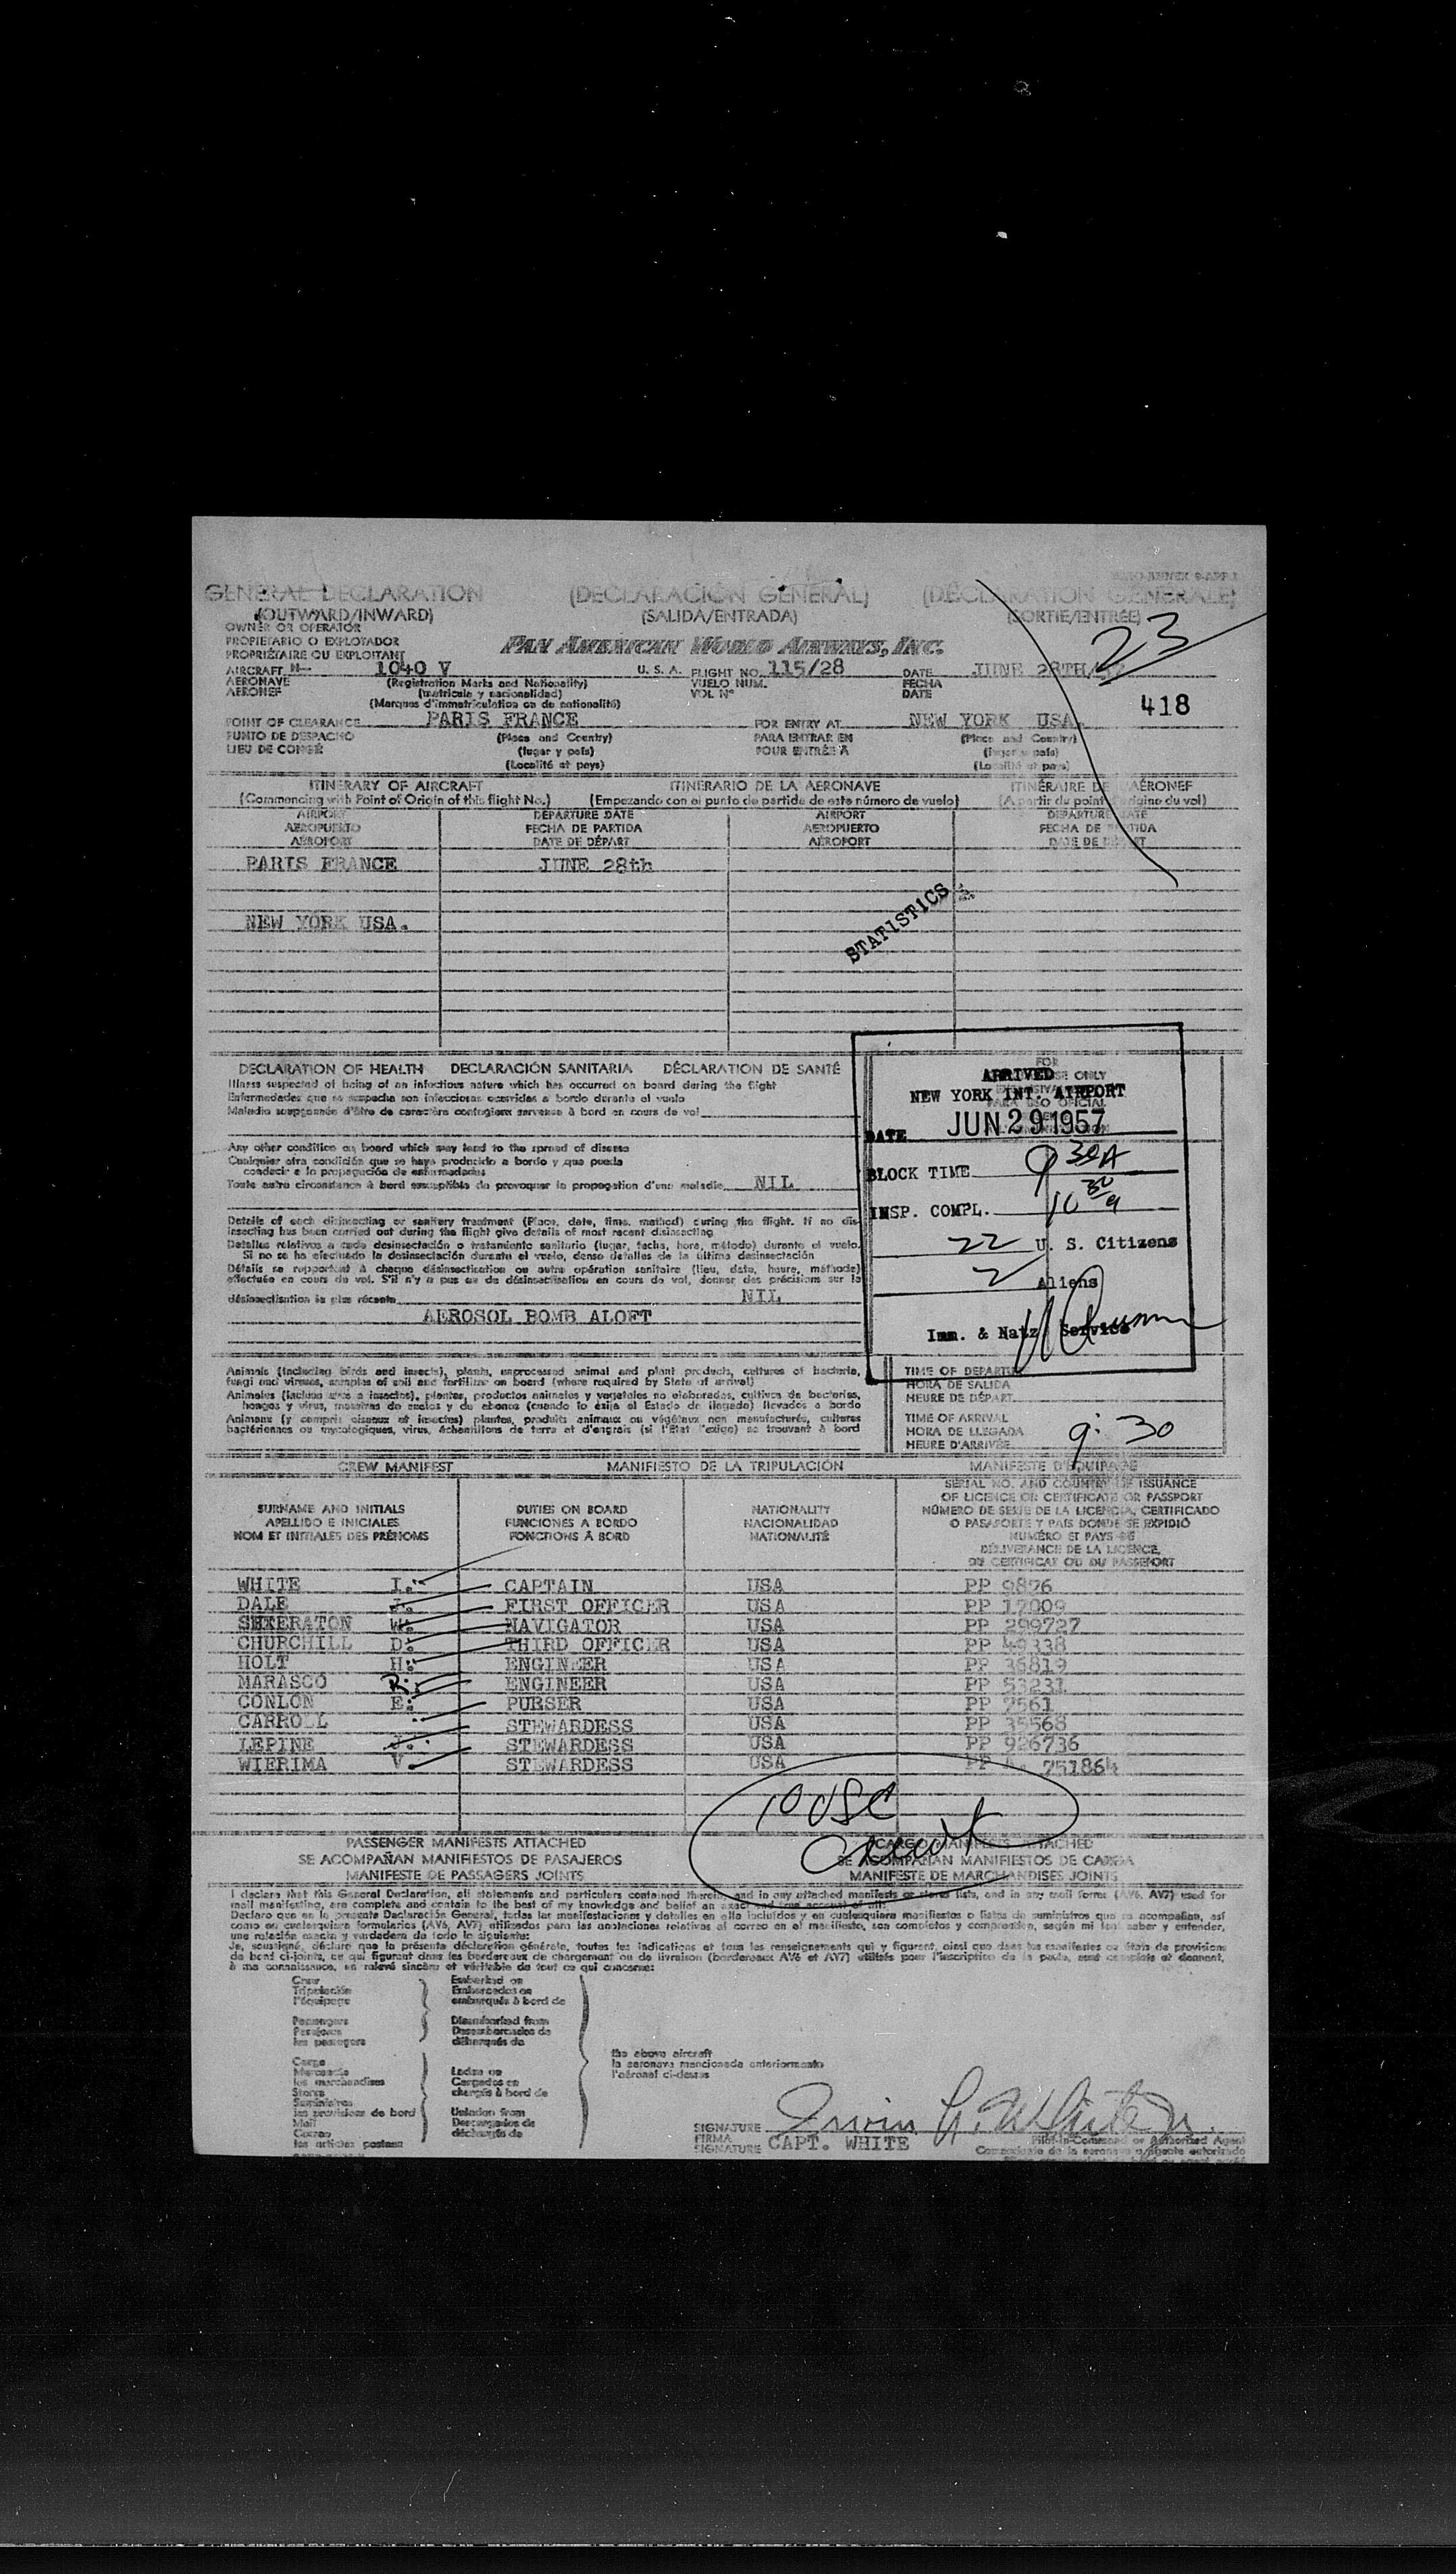 ICAO-ANNEX 9-APP.1
GENERAL DECLARATION (DECLARACIÓN GENERAL) (DÉCLARATION GÉNÉRALE)
(OUTWARD/INWARD) (SALIDA/ENTRADA) (SORTIE/ENTRÉE)
23
OWNER OR OPERATOR
PROPIETARIO O EXPLOTADOR
PROPRIÉTAIRE OU EXPLOITANT
PAN AMERICAN WORLD AIRWAYS, INC.
AIRCRAFT N- 1040 V U. S. A. FLIGHT NO. 115/28 DATE JUNE 28TH/
AERONAVE (Registration Marks and Nationality) VUELO NUM. FECHA
AÉRONEF (matrícula y nacionalidad) VOL N° DATE
(Marques d'immatriculation on de nationalité)
418
POINT OF CLEARANCE PARIS FRANCE FOR ENTRY AT NEW YORK USA.
PUNTO DE DESPACHO (Place and Country) PARA ENTRAR EN (Place and Country)
LIEU DE CONGÉ (lugar y país) POUR ENTRÉE À (lugar y país)
(Localité et pays) (Localité et pays)
ITINERARY OF AIRCRAFT ITINERARIO DE LA AERONAVE ITINÉRAIRE DE L'AÉRONEF
(Commencing with Point of Origin of this flight No.) (Empezando con el punto de partida de este número de vuelo) (A partir du point d'origine du vol)
AIRPORT DEPARTURE DATE AIRPORT DEPARTURE DATE
AEROPUERTO FECHA DE PARTIDA AEROPUERTO FECHA DE PARTIDA
AÉROPORT DATE DE DÉPART AÉROPORT DATE DE DÉPART
PARIS FRANCE JUNE 28th
NEW YORK USA.
STATISTICS
DECLARATION OF HEALTH DECLARACIÓN SANITARIA DÉCLARATION DE SANTÉ
Illness suspected of being of an infectious nature which has occurred on board during the flight
Enfermedades que se sospecha son infecciosas ocurridas a bordo durante el vuelo
Maladie soupçonnée d'être de caractère contagieux survenue à bord en cours de vol
Any other condition on board which may lead to the spread of disease
Cualquier otra condición que se haya producido a bordo y que pueda
conducir a la propagación de enfermedades
Toute autre circonstance à bord susceptible de provoquer la propagation d'une maladie NIL
Details of each disinsecting or sanitary treatment (Place, date, time, method) during the flight. If no dis-
insecting has been carried out during the flight give details of most recent disinsecting
Detalles relativos a cada desinsectación o tratamiento sanitario (lugar, fecha, hora, método) durante el vuelo.
Si no se ha efectuado la desinsectación durante el vuelo, dense detalles de la última desinsectación
Détails se rapportant à chaque désinsectisation ou autre opération sanitaire (lieu, date, heure, méthode)
effectuée en cours de vol. S'il n'y a pas eu de désinsectisation en cours de vol, donner des précisions sur la
désinsectisation la plus récente NIL
AEROSOL BOMB ALOFT
ARRIVED
NEW YORK INT. AIRPORT
DATE JUN 29 1957
BLOCK TIME 9 30A
INSP. COMPL. 10 30 A
22 U. S. Citizens
2 Aliens
Imm. & Natz. Service
Animals (including birds and insects), plants, unprocessed animal and plant products, cultures of bacteria,
fungi and viruses, samples of soil and fertilizer on board (where required by State of arrival)
Animales (incluso aves e insectos), plantas, productos animales y vegetales no elaborados, cultivos de bacterias,
hongos y virus, muestras de suelos y de abonos (cuando lo exija el Estado de llegada) llevados a bordo
Animaux (y compris oiseaux et insectes) plantes, produits animaux ou végétaux non manufacturés, cultures
bactériennes ou mycologiques, virus, échantillons de terre et d'engrais (si l'État l'exige) se trouvant à bord
TIME OF DEPARTURE
HORA DE SALIDA
HEURE DE DÉPART
TIME OF ARRIVAL
HORA DE LLEGADA 9:30
HEURE D'ARRIVÉE
CREW MANIFEST MANIFIESTO DE LA TRIPULACIÓN MANIFESTE D'ÉQUIPAGE
SURNAME AND INITIALS
APELLIDO E INICIALES
NOM ET INITIALES DES PRÉNOMS
DUTIES ON BOARD
FUNCIONES A BORDO
FONCTIONS À BORD
NATIONALITY
NACIONALIDAD
NATIONALITÉ
SERIAL NO. AND COUNTRY OF ISSUANCE
OF LICENCE OR CERTIFICATE OR PASSPORT
NÚMERO DE SERIE DE LA LICENCIA, CERTIFICADO
O PASAPORTE Y PAÍS DONDE SE EXPIDIÓ
NUMÉRO ET PAYS DE
DÉLIVERANCE DE LA LICENCE,
DU CERTIFICAT OU DU PASSEPORT
WHITE I. CAPTAIN USA PP 9876
DALE J. FIRST OFFICER USA PP 17009
SHTERATON W. NAVIGATOR USA PP 299727
CHURCHILL D. THIRD OFFICER USA PP 49338
HOLT H. ENGINEER USA PP 36819
MARASCO R. ENGINEER USA PP 53231
CONLON E. PURSER USA PP 7561
CARROLL STEWARDESS USA PP 35568
LEPINE J. STEWARDESS USA PP 926736
WIERIMA V. STEWARDESS USA PP 751864
10 USC
Crew
PASSENGER MANIFESTS ATTACHED CARGO MANIFESTS ATTACHED
SE ACOMPAÑAN MANIFIESTOS DE PASAJEROS SE ACOMPAÑAN MANIFIESTOS DE CARGA
MANIFESTE DE PASSAGERS JOINTS MANIFESTE DE MARCHANDISES JOINTS
I declare that this General Declaration, all statements and particulars contained therein, and in any attached manifests or stores lists, and in any mail forms (AV6, AV7) used for
mail manifesting, are complete and contain to the best of my knowledge and belief an exact and true account of all:
Declaro que en la presente Declaración General, todas las manifestaciones y detalles en ella incluídos y en cualesquiera manifiestos o listas de suministros que se acompañan, así
como en cualesquiera formularios (AV6, AV7) utilizados para las anotaciones relativas al correo en el manifiesto, son completos y comprenden, según mi leal saber y entender,
una relación exacta y verdadera de todo lo siguiente:
Je, soussigné, déclare que la présente déclaration générale, toutes les indications et tous les renseignements qui y figurent, ainsi que dans les manifestes ou états de provisions
de bord ci-joints, ce qui figurant dans les bordereaux de chargement ou de livraison (bordereaux AV6 et AV7) utilisés pour l'inscription de la poste, sont complets et donnent,
à ma connaissance, un relevé sincère et véritable de tout ce qui concerne:
Crew Embarked on
Tripulación Embarcados en
l'équipage embarqués à bord de
Passengers Disembarked from
Pasajeros Desembarcados de
les passagers débarqués de
Cargo
Mercancía Laden on
les marchandises Cargados en
Stores chargés à bord de
Suministros
les provisions de bord Unladen from
Mail Descargados de
Correo déchargés de
les articles postaux
the above aircraft
la aeronave mencionada anteriormente
l'aéronef ci-dessus
SIGNATURE Irwin G. White Jr.
FIRMA
SIGNATURE CAPT. WHITE
Pilot-in-Command or Authorized Agent
Comandante de la aeronave o agente autorizado